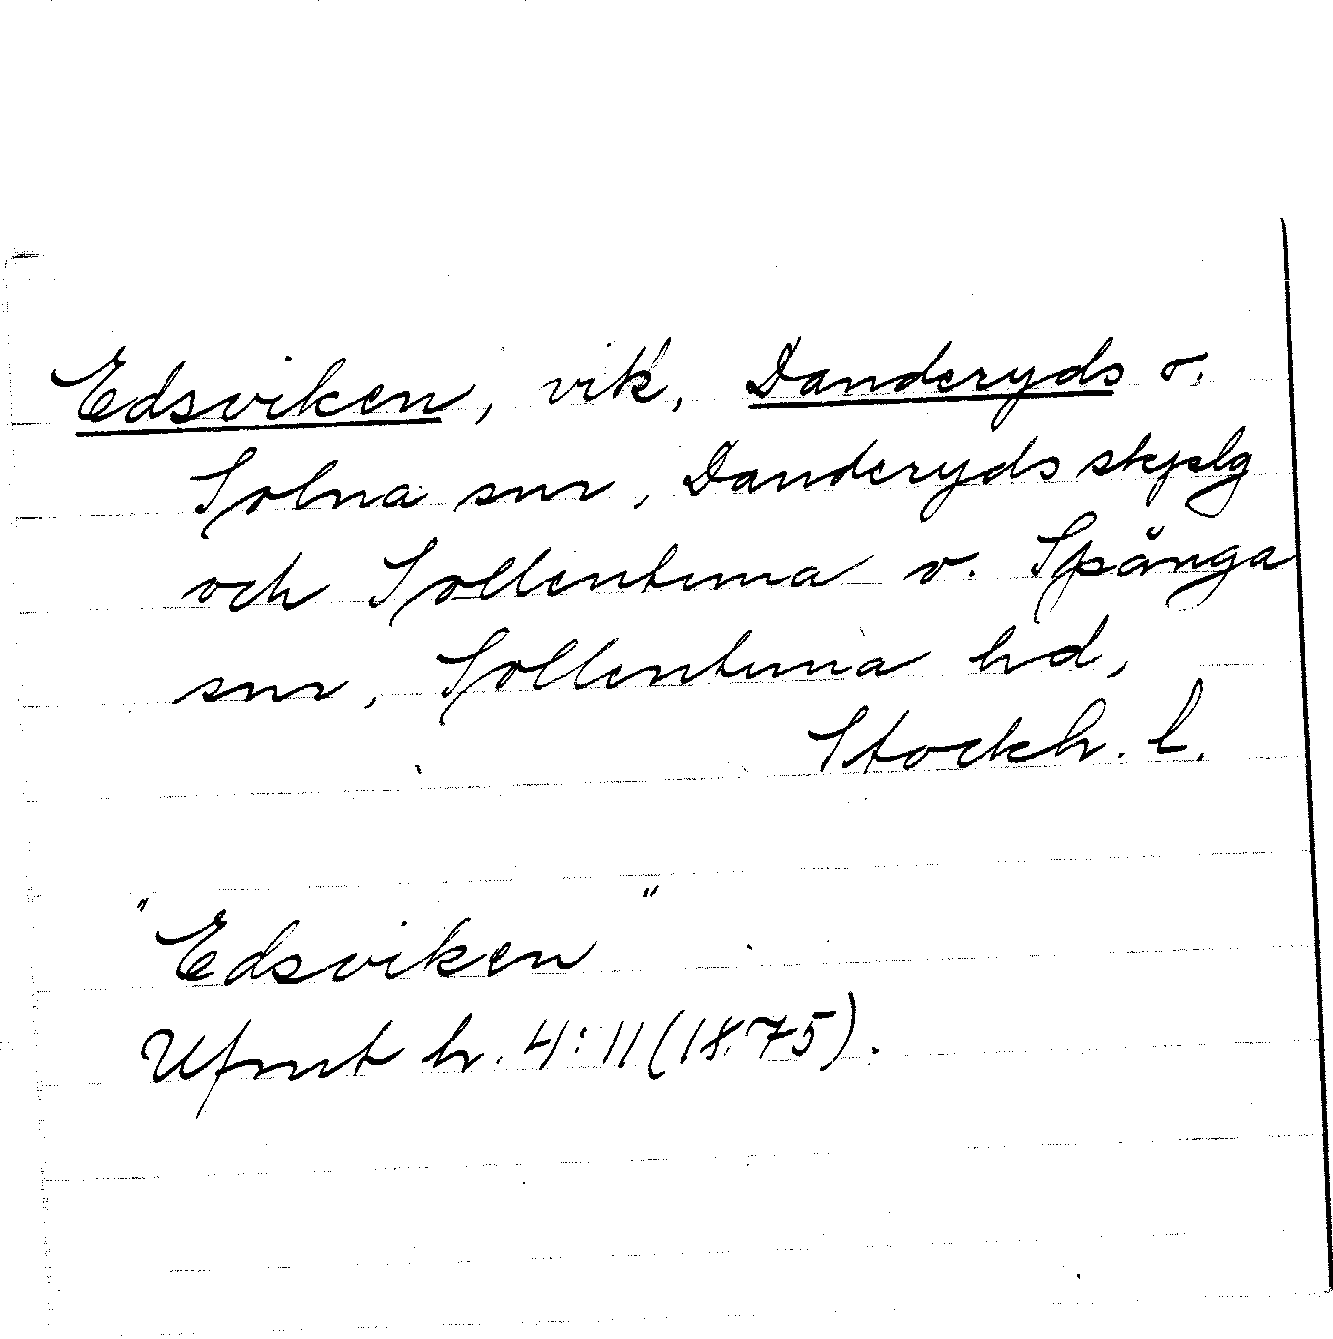 Edsviken, vik, Danderyds o.
Solna snr, Danderyds skjslg
och Sollentuna o. Spånga
snr, Sollentuna hd,
Stockh. l.
"Edsviken"
Ufmt h. 4:11 (1875).